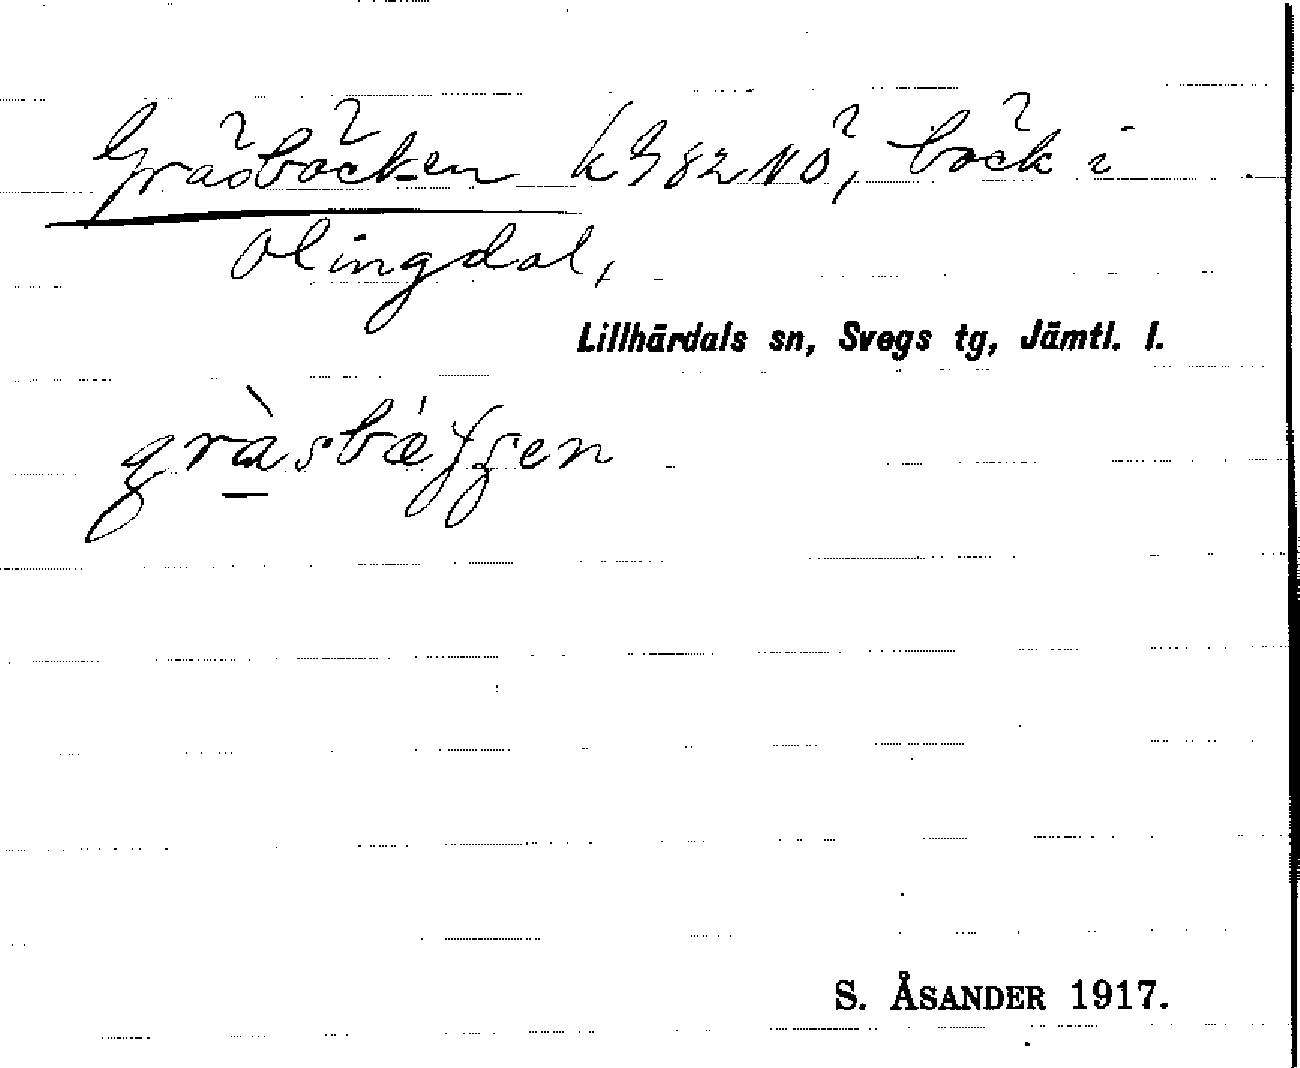 Gräsbäcken k G 82 NÖ, bäck i
Olingdal,
Lillhärdals sn, Svegs tg, Jämtl. l.
S. ÅSANDER 1917.